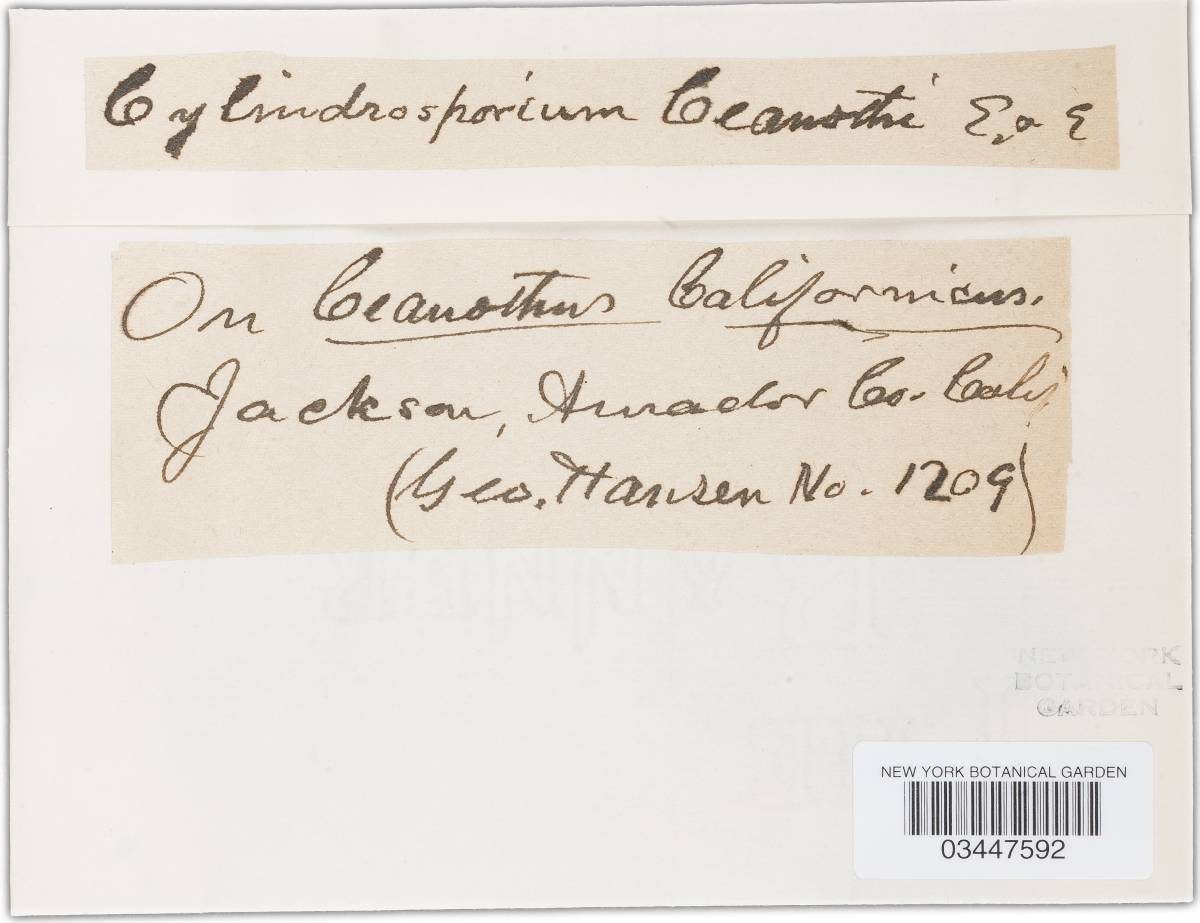 Cylindrosporium Ceanothi E. & E
On Ceanothus Californicus.
Jackson, Amador Co. Calif
(Geo. Hansen No. 1209)
NEW YORK
BOTANICAL
GARDEN
NEW YORK BOTANICAL GARDEN
03447592